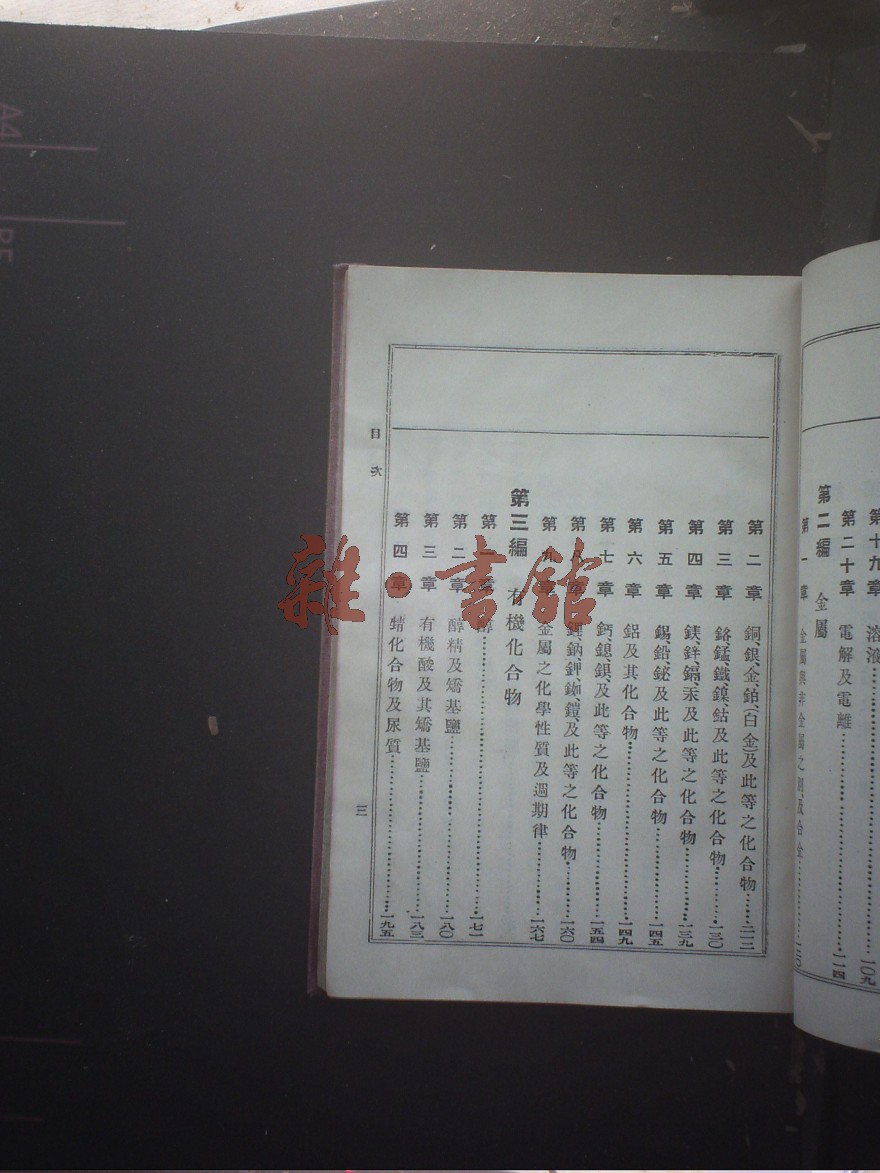 第十九章 溶液……一〇九
第二十章 電解及電離……一一四
第二編 金屬
第一章 金屬與非金屬之別及合金……一二〇
第二章 銅、銀、金、鉑(白金)及此等之化合物……
第三章 鉻、錳、鐵、鎳、鈷及此等之化合物……一三〇
第四章 鎂、鋅、鎘、汞及此等之化合物……一三九
第五章 錫、鉛、鉍及此等之化合物……一四五
第六章 鋁及其化合物……一四九
第七章 鈣、鎴、鋇、及此等之化合物……一五四
第八章 鋰、鈉、鉀、銣、鎧、及此等之化合物……一六〇
第九章 金屬之化學性質及週期律……一六七
第三編 有機化合物
第一章……一七一
第二章 醇精及矯基鹽……一八〇
第三章 有機酸及其矯基鹽……一八三
第四章 蜻化合物及尿質……一九五
目次
三
雜·書館
A4
B5